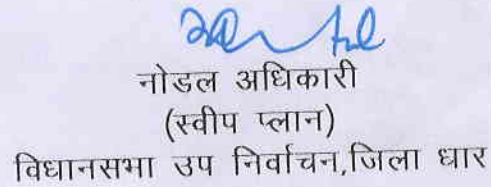 नोडल अधिकारी
(स्वीप प्लान)
विधानसभा उप निर्वाचन,जिला धार